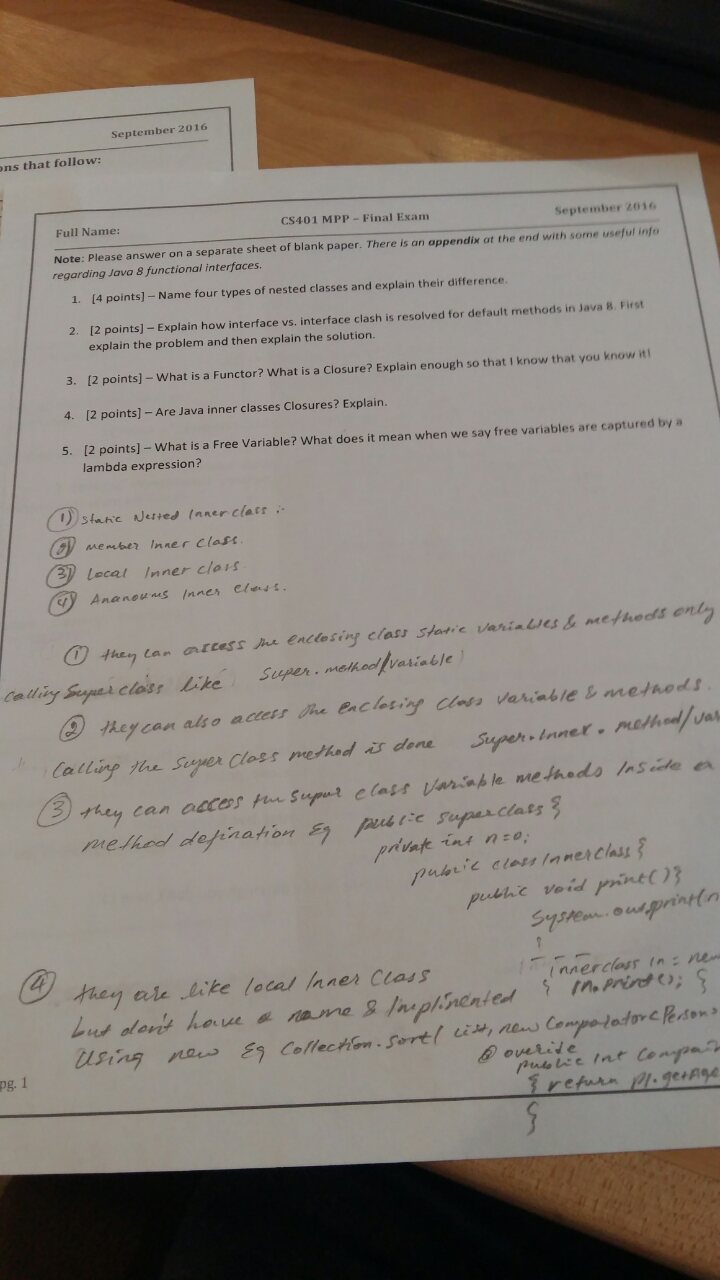 September 2016
ons that follow:
Full Name:
CS401 MPP – Final Exam
September 2016
Note: Please answer on a separate sheet of blank paper. There is an appendix at the end with some useful info
regarding Java 8 functional interfaces.
1. [4 points] – Name four types of nested classes and explain their difference.
2. [2 points] – Explain how interface vs. interface clash is resolved for default methods in Java 8. First
explain the problem and then explain the solution.
3. [2 points] – What is a Functor? What is a Closure? Explain enough so that I know that you know it!
4. [2 points] – Are Java inner classes Closures? Explain.
5. [2 points] – What is a Free Variable? What does it mean when we say free variables are captured by a
lambda expression?
1) Static Nested Inner class :-
2) Member Inner Class.
3) Local Inner class
4) Ananoums Inner Class.
1 they can access the enclosing class static variables & methods only
calling Super class like Super.method/variable
2 they can also access the enclosing class variable & methods.
Calling the Super Class method is done Super.Inner.method/var
3 they can access the supur class variable methods Inside a
method defination Eg public superclass {
private int n=0;
public class InnerClass {
public void print() {
System.out.println
Innerclass in = new
} In.print(); {
4 they are like local Inner Class
but don't have a name & Implinented
Using new Eg Collection.sort( list, new Comparator<Person>
@ override
public int Compair
{ return p1.getAge
}
pg. 1